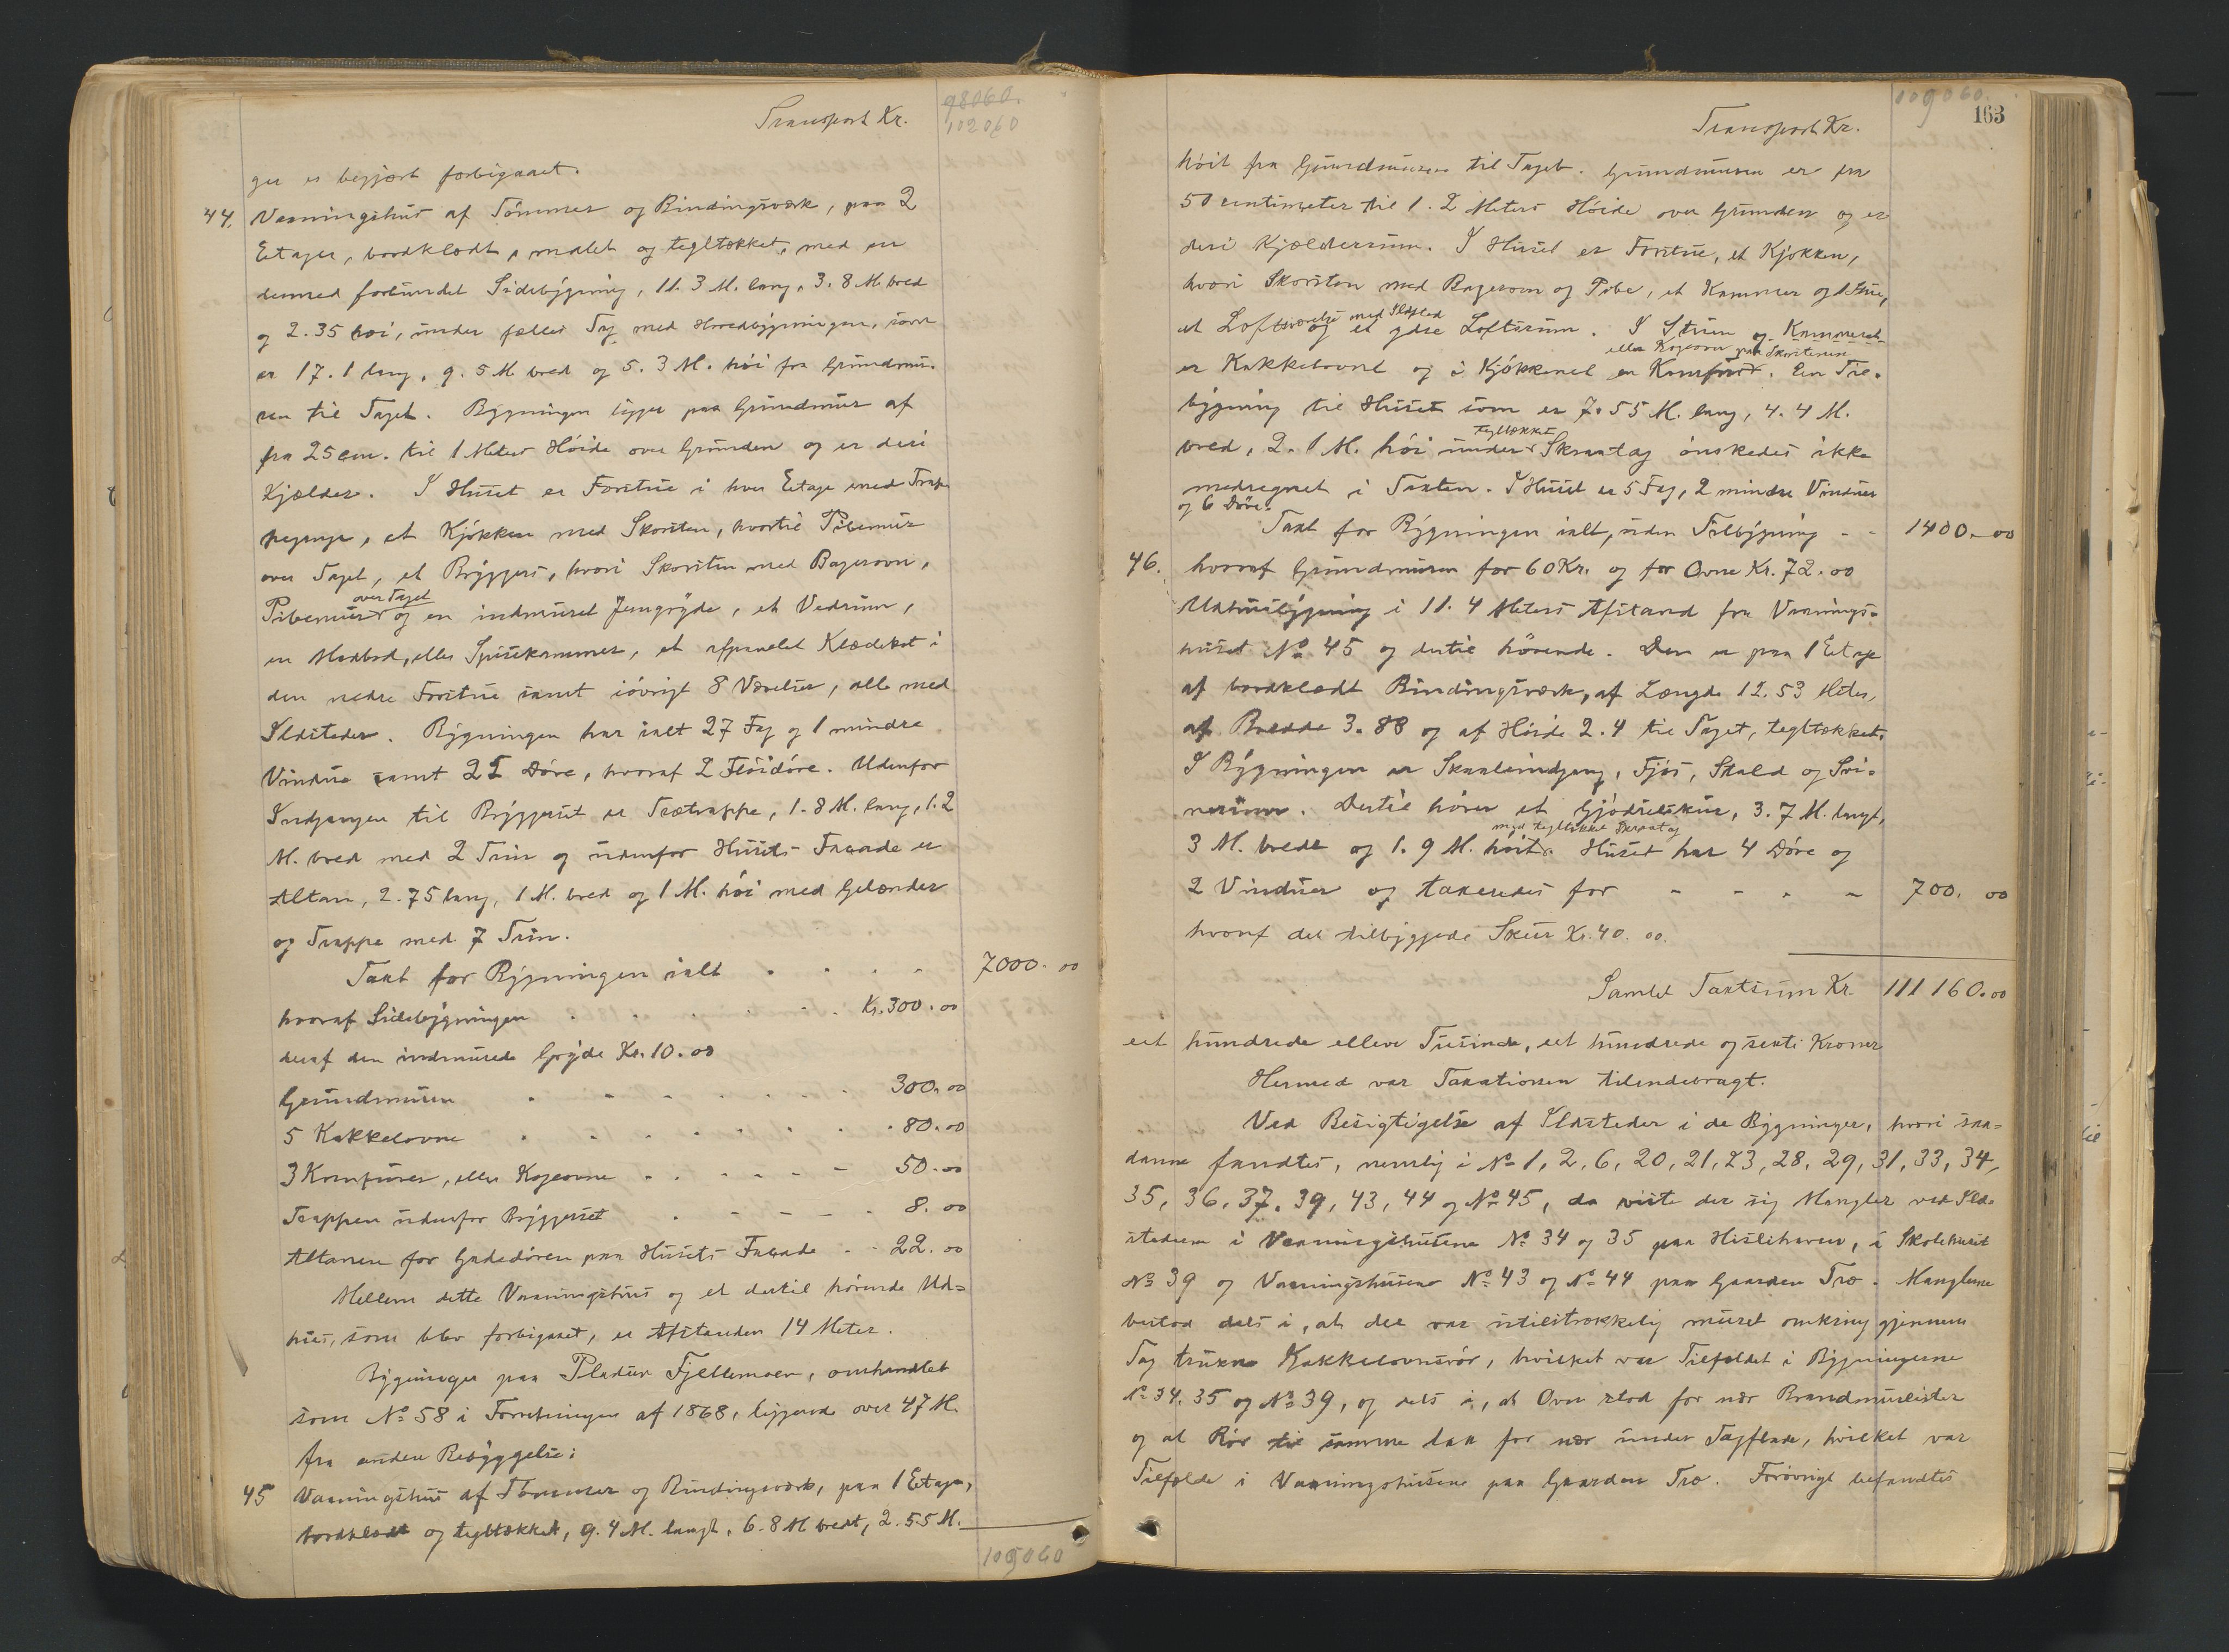 98060.
Transport Kr. 102060
ger er begjært forbigaaet.
44. Vaaningshus af Tømmer og Bindingsværk, paa 2
Etager, bordklædt, malet og tegltækket, med en
dermed forbundet Sidebygning, 11.3 M. lang, 3.8 M. bred
og 2.35 høi, under fælles Tag med Hovedbygningen, som
er 17.1 lang, 9.5 M bred og 5.3 M. høi fra Grundmu-
ren til Taget. Bygningen ligger paa Grundmur af
fra 25 cm. til 1 Meters Høide over Grunden og er deri
Kjælder. I Huset er Forstue i hver Etage med Trap-
pegange, et Kjøkken med Skorsten, hvortil Pibemur
over Taget, et Bryggers, hvori Skorsten med Bagerovn,
over Taget
Pibemur og en indmuret Jerngryde, et Vedrum,
en Madbod, eller Spisekammer, et afpanelet Klædekot i
den nedre Forstue samt iøvrigt 8 Værelser, alle med
Ildsteder. Bygningen har ialt 27 Fag og 1 mindre
Vindue samt 25 Døre, hvoraf 2 Fløidøre. Udenfor
Indgangen til Bryggerset er Trætrappe, 1.8 M. lang, 1.2
M. bred med 2 Trin og udenfor Husets Facade er
Altan, 2.75 lang, 1 M. bred og 1 M. høi med Gelænder
og Trappe med 7 Trin.
Taxt for Bygningen ialt . . . . 7000. 00
hvoraf Sidebygningen . . . . . Kr. 300.00
deraf den indmurede Gryde Kr. 10.00
Grundmuren . . . . . . 300.00
5 Kakkelovne . . . . . . 80.00
3 Komfurer, eller Kogeovne . . . . 50.00
Trappen udenfor Bryggerset . . . . 8.00
Altanen for Gadedøren paa Husets Facade . . 22.00
Mellem dette Vaaningshus og et dertil hørende Ud=
hus, som blev forbigaaet, er Afstanden 14 Meter.
Bygninger paa Pladsen Fjellemoen, omhandlet
som No 58 i Forretningen af 1868, liggende over 47 M.
fra anden Bebyggelse:
45 Vaaningshus af Tømmer og Bindingsværk, paa 1 Etage,
bordklædt og tegltækket, 9.4 M. langt, 6.8 M bredt, 2.55 M.
109060
109060.
163
Transport Kr.
høit fra Grundmuren til Taget. Grundmuren er fra
50 centimeter til 1.2 Meters Høide over Grunden og er
deri Kjælderrum. I Huset er Forstue, et Kjøkken,
hvori Skorsten med Bagerovn og Pibe, et Kammer og 1 Stue,
et Loftsværelse med Ildsted og et ydre Loftsrum. I Stuen og Kammeret
eller Kogeovn paa Skorstenen
er Kakkelovne og i Kjøkkenet en Komfur. En Til-
bygning til Huset som er 7.55 M. lang, 4.4 M.
tegltækket
bred, 2.1 M. høi under Skraatag ønskedes ikke
medregnet i Taxten. I Huset er 5 Fag, 2 mindre Vinduer
og 6 Døre.
Taxt for Bygningen ialt, uden Tilbygning - - 1400.00
hvoraf Grundmuren for 60 Kr. og for Ovne Kr. 72.00
46. Udhusbygning i 11.4 Meters Afstand fra Vaanings-
huset No 45 og dertil hørende. Den er paa 1 Etage
af bordklædt Bindingsværk, af Længde 12.53 Meter,
af Bredde 3.88 og af Høide 2.4 til Taget, tegltækket.
I Bygningen er Skaaleindgang, Fjøs, Stald og Svi-
nerum. Dertil hører et Gjødselskur, 3.7 M. langt,
med tegltækket Skraatag
3 M. bredt og 1.9 M. høit. Huset har 4 Døre og
2 Vinduer og taxeredes for - - - - 700. 00
hvoraf det tilbyggede Skur Kr. 40.00.
Samlet Taxtsum Kr. 111160.00
eet hundrede elleve Tusinde, eet hundrede og sexti Kroner
Hermed var Taxationen tilendebragt.
Ved Besigtigelse af Ildsteder i de Bygninger, hvori saa=
danne fandtes, nemlig i No 1, 2, 6, 20, 21, 23, 28, 29, 31, 33, 34,
35, 36, 37, 39, 43, 44 og No 45, da viste der sig Mangler ved Ild-
stederne i Vaaningshusene No 34 og 35 paa Hislehaven, i Skolehuset
No 39 og Vaaningshusene No 43 og No 44 paa Gaarden Tro. Manglerne
bestod dels i, at der var utilstrækkelig muret omkring gjennem
Tag trukne Kakkelovnsrør, hvilket var Tilfældet i Bygningerne
No 34, 35 og No 39, og dels i, at Ovn stod for nær Brandmurlister
og at Rør til samme laa for nær under Tagflade, hvilket var
Tilfælde i Vaaningshusene paa Gaarden Tro. Forøvrigt befandtes